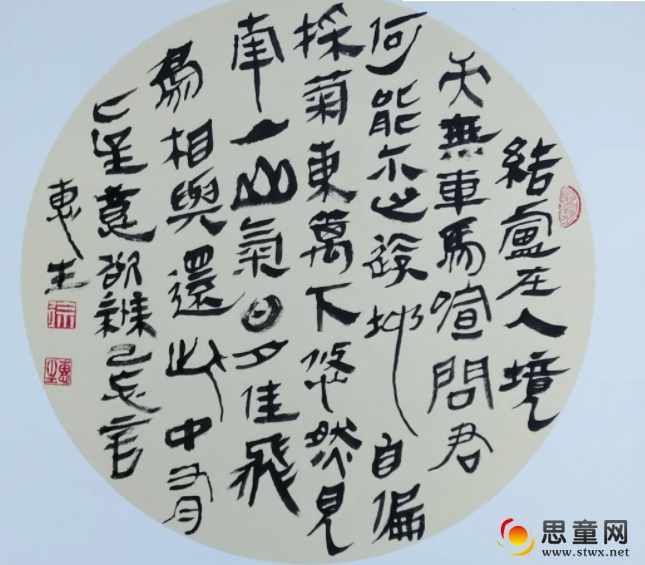 結盧在人境
而無車馬喧問君
何能尔心遠地自偏
採菊東萬下悠然見
南山山氣日夕佳飛
鳥相與還此中有
真意欲辨已忘言
惠生
思童网
www.stwx.net